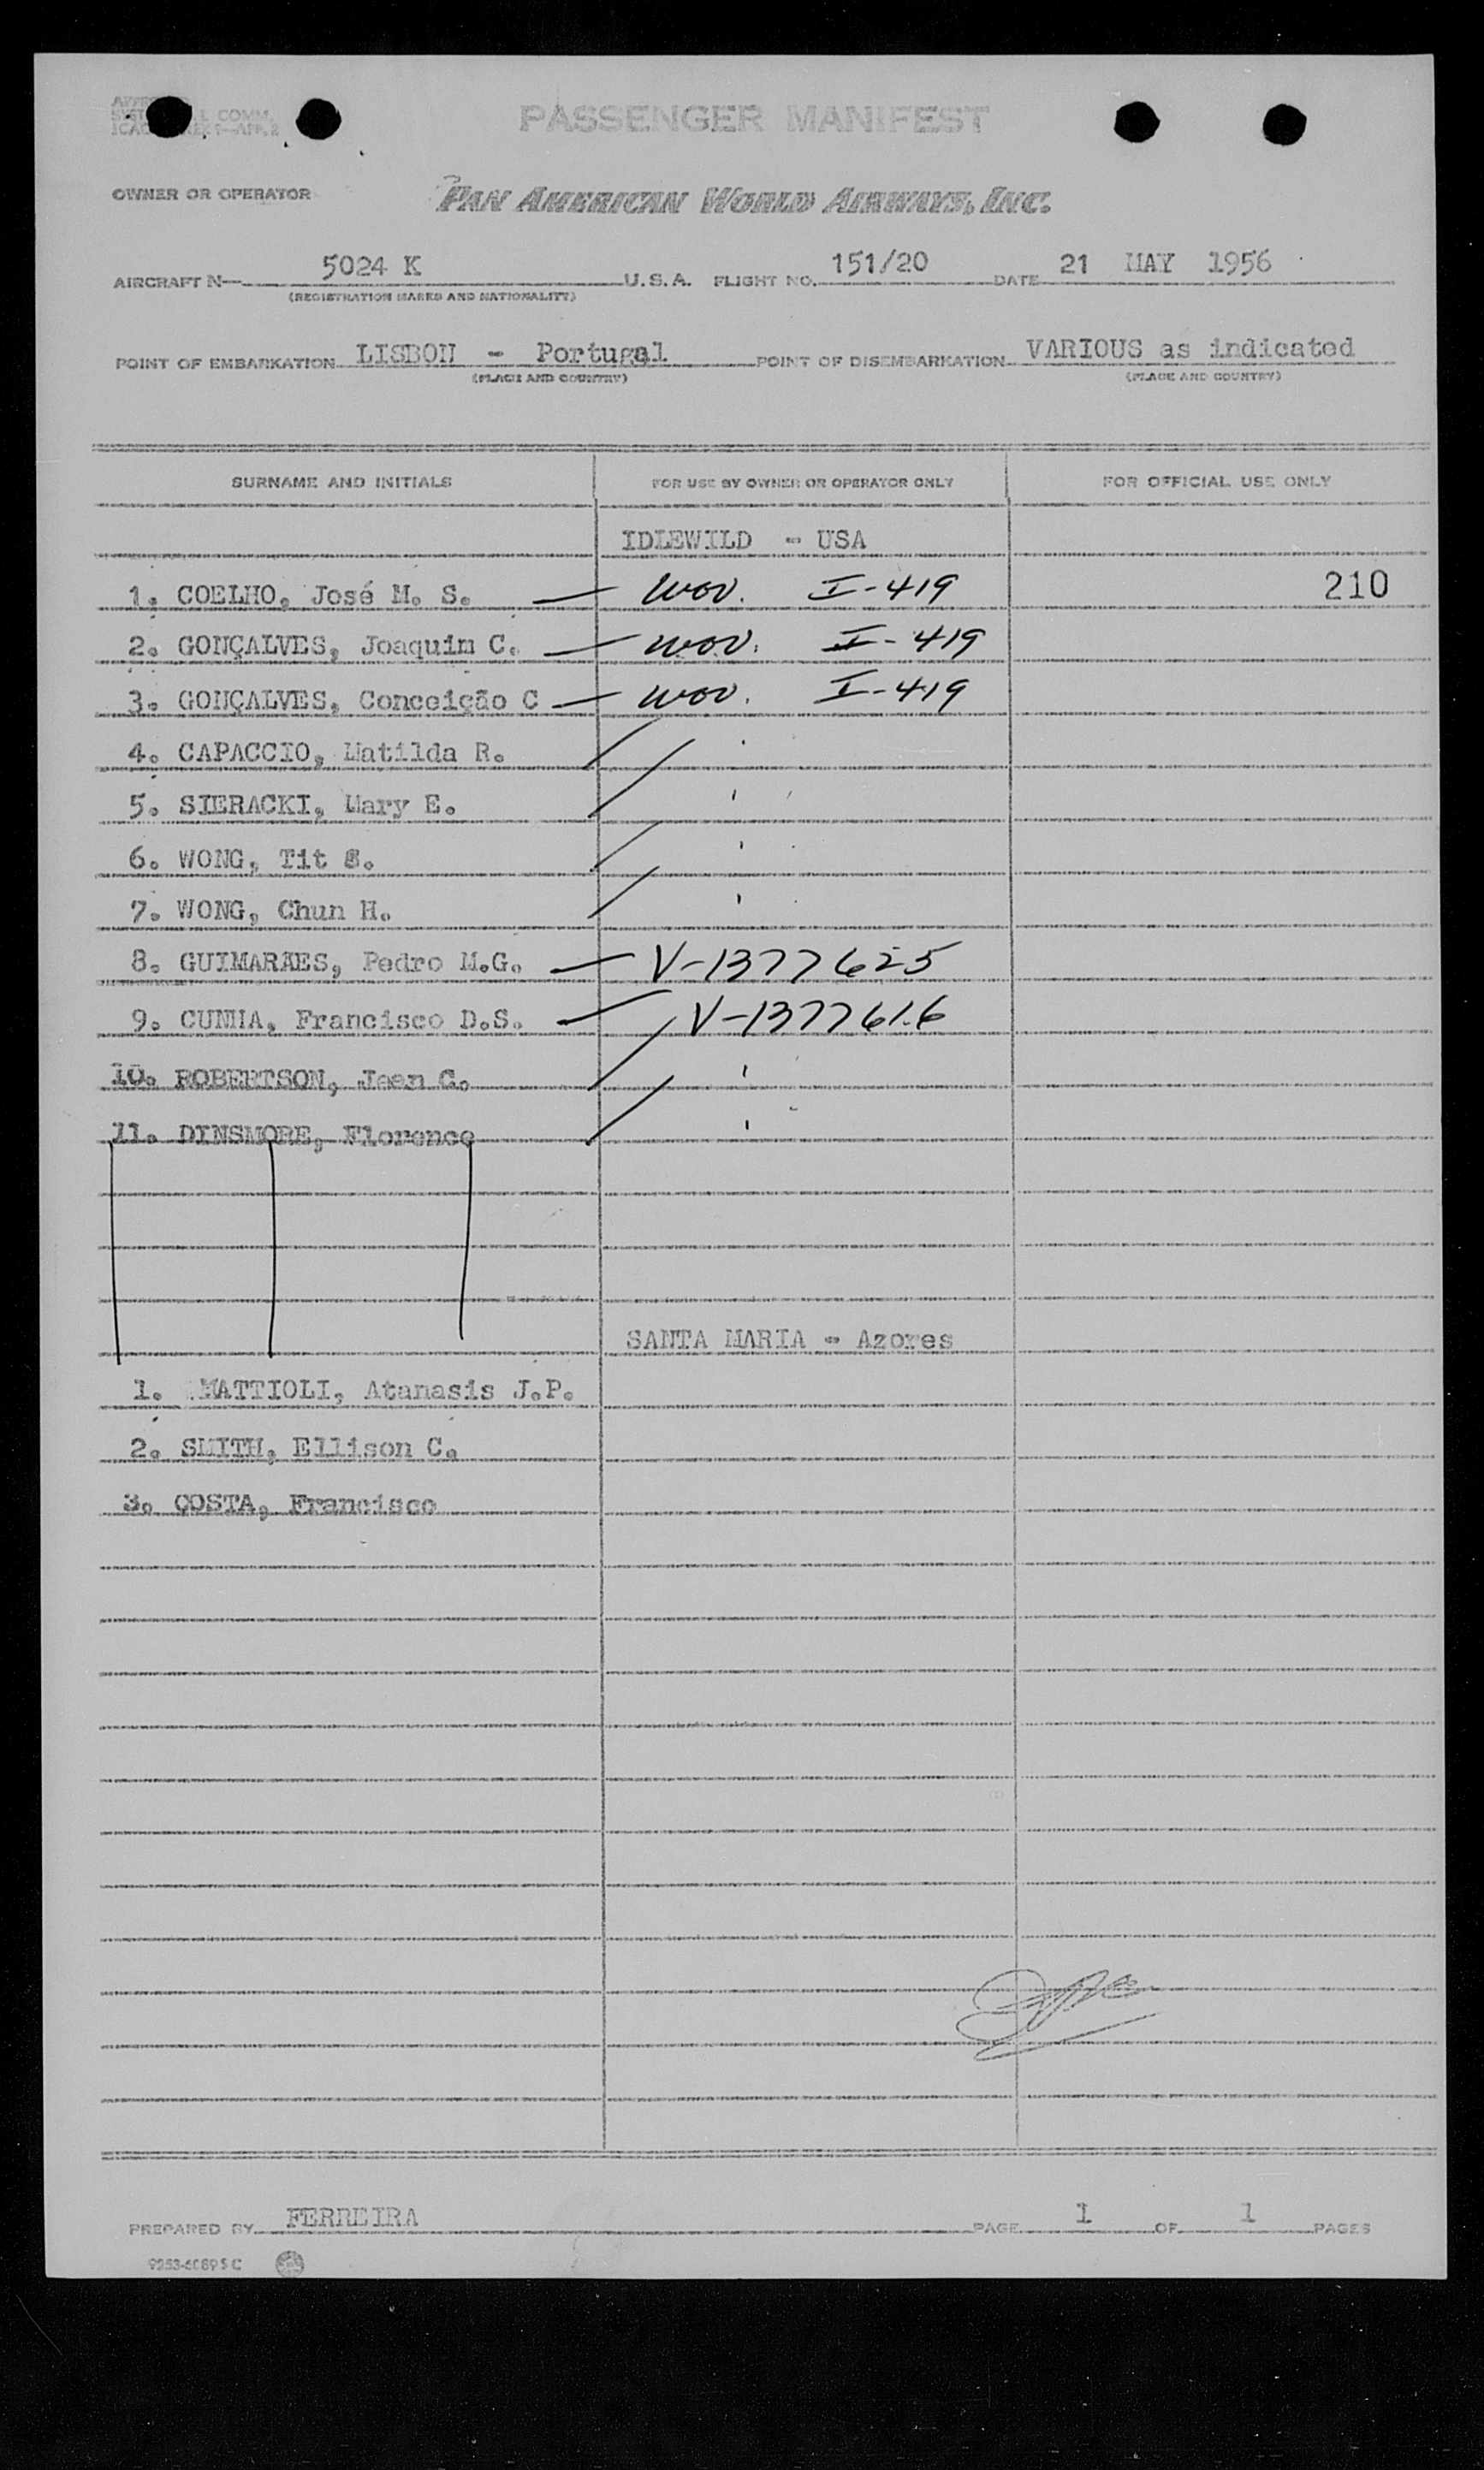 PASSENGER MANIFEST
OWNER OR OPERATOR PAN AMERICAN WORLD AIRWAYS, INC.
AIRCRAFT N— 5024 K U.S.A. FLIGHT NO. 151/20 DATE 21 MAY 1956
(REGISTRATION MARKS AND NATIONALITY)
POINT OF EMBARKATION LISBON - Portugal POINT OF DISEMBARKATION VARIOUS as indicated
(PLACE AND COUNTRY) (PLACE AND COUNTRY)
SURNAME AND INITIALS FOR USE BY OWNER OR OPERATOR ONLY FOR OFFICIAL USE ONLY
IDLEWILD - USA
1. COELHO, José M. S. — I-419 210
2. GONÇALVES, Joaquim C. — I-419
3. GONÇALVES, Conceição C — I-419
4. CAPACCIO, Matilda R.
5. SIERACKI, Mary E.
6. WONG, Tit S.
7. WONG, Chun H.
8. GUIMARAES, Pedro M.G. — V-1377625
9. CUNHA, Francisco D.S. — V-1377616
10. ROBERTSON, Jean G.
11. DINSMORE, Florence
SANTA MARIA - Azores
1. MATTIOLI, Atanasis J.P.
2. SMITH, Ellison C.
3. COSTA, Francisco
PREPARED BY FERREIRA PAGE 1 OF 1 PAGES